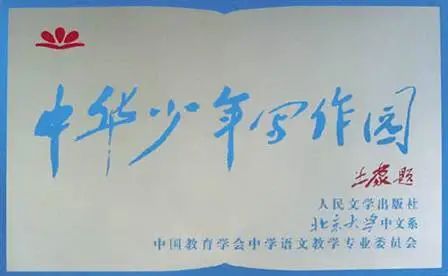 中华少年写作园
王蒙题
人民文学出版社
北京大学中文系
中国教育学会中学语文教学专业委员会